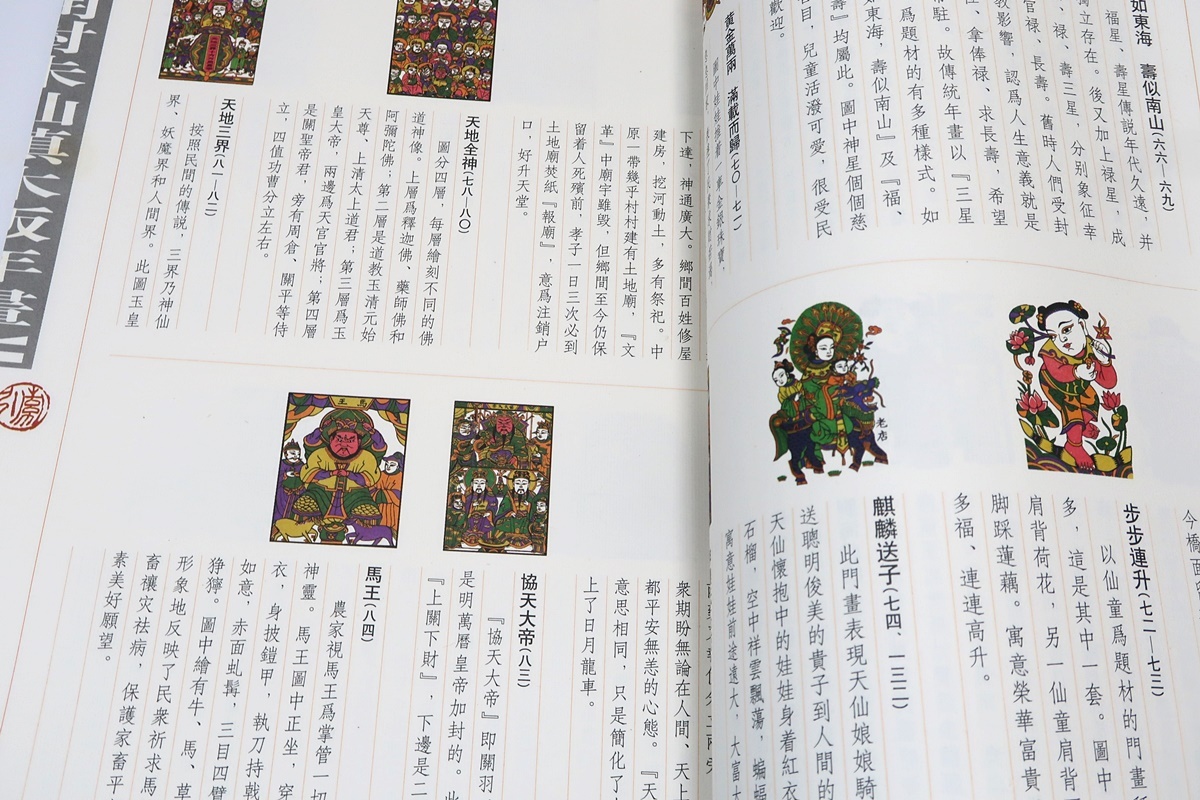 如東海 壽似南山(六六—六九)
福星、壽星傳説年代久遠,并
獨立存在。後又加上禄星,成
、禄、壽三星,分别象征幸
官禄、長壽。舊時人們受封
教影響,認爲人生意義就是
、拿俸禄、求長壽,希望
常駐。故傳統年畫以『三星
爲題材的有多種樣式。如
如東海,壽似南山』及『福、
壽』均屬此。圖中神星個個慈
眉目,兒童活潑可愛,很受民
歡迎。
黄金萬兩 滿載而歸(七〇、七一)
步步連升(七二—七三)
以仙童爲題材的門畫
多,這是其中一套。圖中
肩背荷花,另一仙童肩背
脚踩蓮藕。寓意榮華富貴
多福、連連高升。
老店
麒麟送子(七四、一三一)
此門畫表現天仙娘娘騎
送聰明俊美的貴子到人間的
天仙懷抱中的娃娃身着紅衣
石榴,空中祥雲飄蕩,蝙蝠
寓意娃娃前途遠大,大富大
下達,神通廣大。鄉間百姓修屋
建房,挖河動土,多有祭祀。中
原一帶幾乎村村建有土地廟,『文
革』中廟宇雖毁,但鄉間至今仍保
留着人死殯前,孝子一日三次必到
土地廟焚紙『報廟』,意爲注銷户
口,好升天堂。
天地全神(七八—八〇)
圖分四層,每層繪刻不同的佛
道神像。上層爲釋迦佛、藥師佛和
阿彌陀佛;第二層是道教玉清元始
天尊、上清太上道君;第三層爲玉
皇大帝,兩邊爲天官官將;第四層
是關聖帝君,旁有周倉、關平等侍
立,四值功曹分立左右。
天地三界(八一—八二)
按照民間的傳説,三界乃神仙
界、妖魔界和人間界。此圖玉皇
衆期盼無論在人間、天上
都平安無恙的心態。『天
意思相同,只是簡化了
上了日月龍車。
協天大帝(八三)
『協天大帝』即關羽
是明萬曆皇帝加封的。此
『上關下財』,下邊是二
馬王
馬王(八四)
農家視馬王爲掌管一切
神靈。馬王圖中正坐,穿
衣,身披鎧甲,執刀持戟
如意,赤面虬髯,三目四臂
狰獰。圖中繪有牛、馬、草
形象地反映了民衆祈求馬
畜禳灾祛病,保護家畜平
素美好願望。